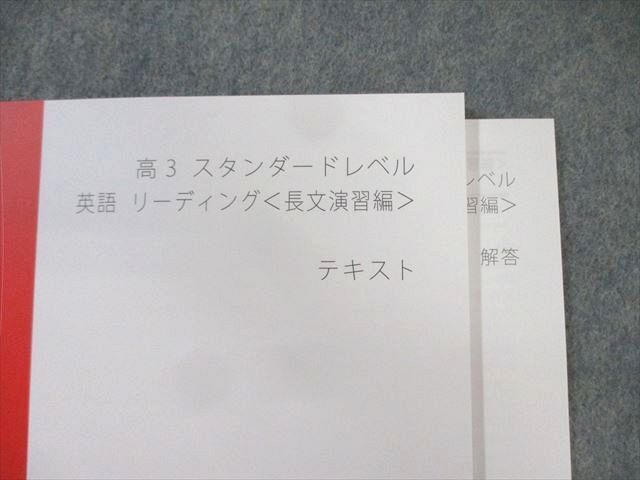 高3 スタンダードレベル
英語 リーディング<長文演習編>
テキスト
レベル
習編>
解答